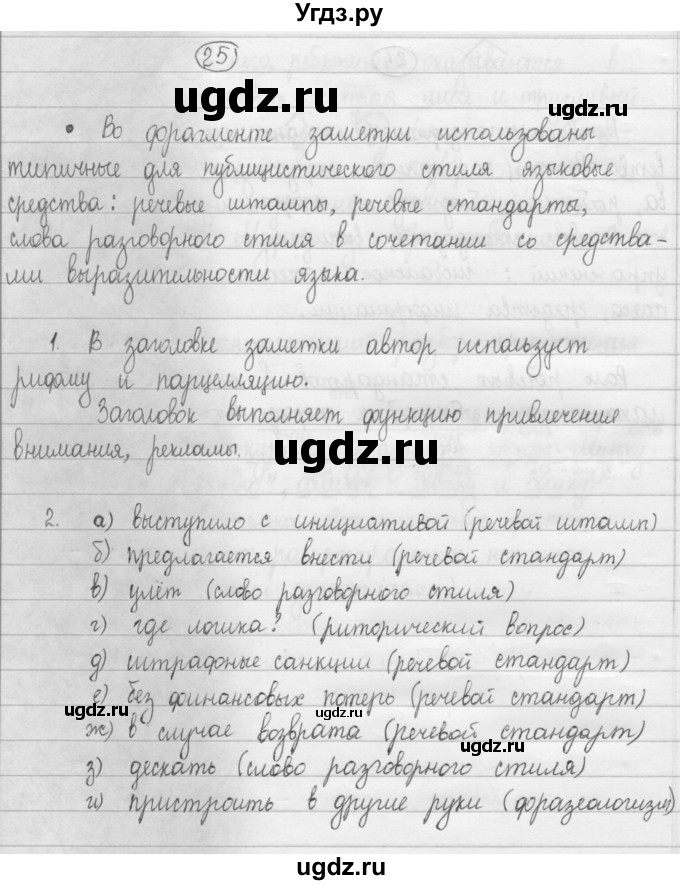 Угдз.ру
25
ugdz.ru
• Во фрагменте заметки использованы
типичные для публицистического стиля языковые
средства: речевые штампы, речевые стандарты,
слова разговорного стиля в сочетании со средства-
ми выразительности языка.
1. В заголовке заметки автор использует
рифму и парцелляцию.
Заголовок выполняет функцию привлечения
внимания, рекламы.
ugdz.ru
2. а) выступило с инициативой (речевой штамп)
б) предлагается внести (речевой стандарт)
в) улёт (слово разговорного стиля)
г) где логика? (риторический вопрос)
д) штрафные санкции (речевой стандарт)
е) без финансовых потерь (речевой стандарт)
ugdz.ru
ж) в случае возврата (речевой стандарт)
ugdz.ru
з) дескать (слово разговорного стиля)
и) пристроить в другие руки (фразеологизм)
ugdz.ru